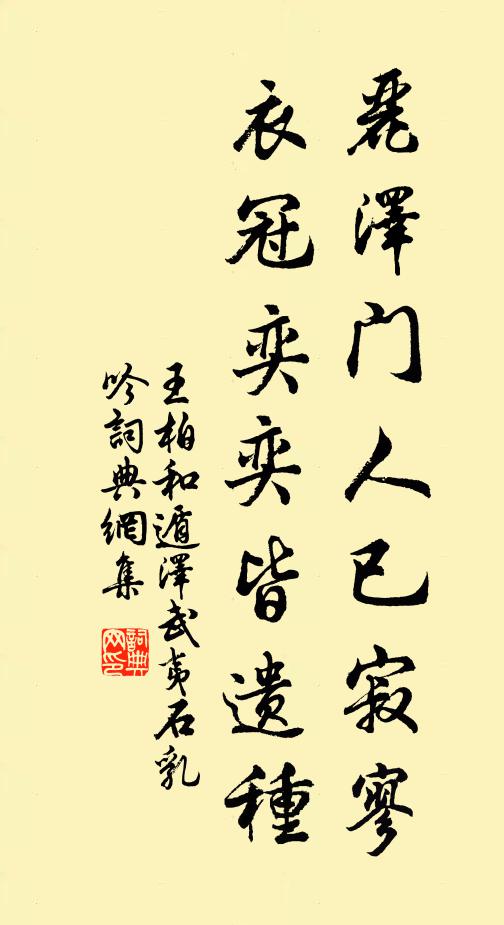 麗澤門人已寂寥
衣冠奕奕皆遺種
王柏和遁澤武夷石乳
吟詞典網集
詞典网印